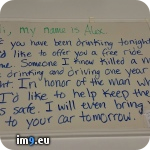 Hi, my name is Alex.
If you have been drinking tonight
I'd like to offer you a free ride
home. Someone I know killed a
drinking and driving one year
In honor of the man who
I'd like to help keep the
safe. I will even bring
to your car tomorrow.
im9.eu